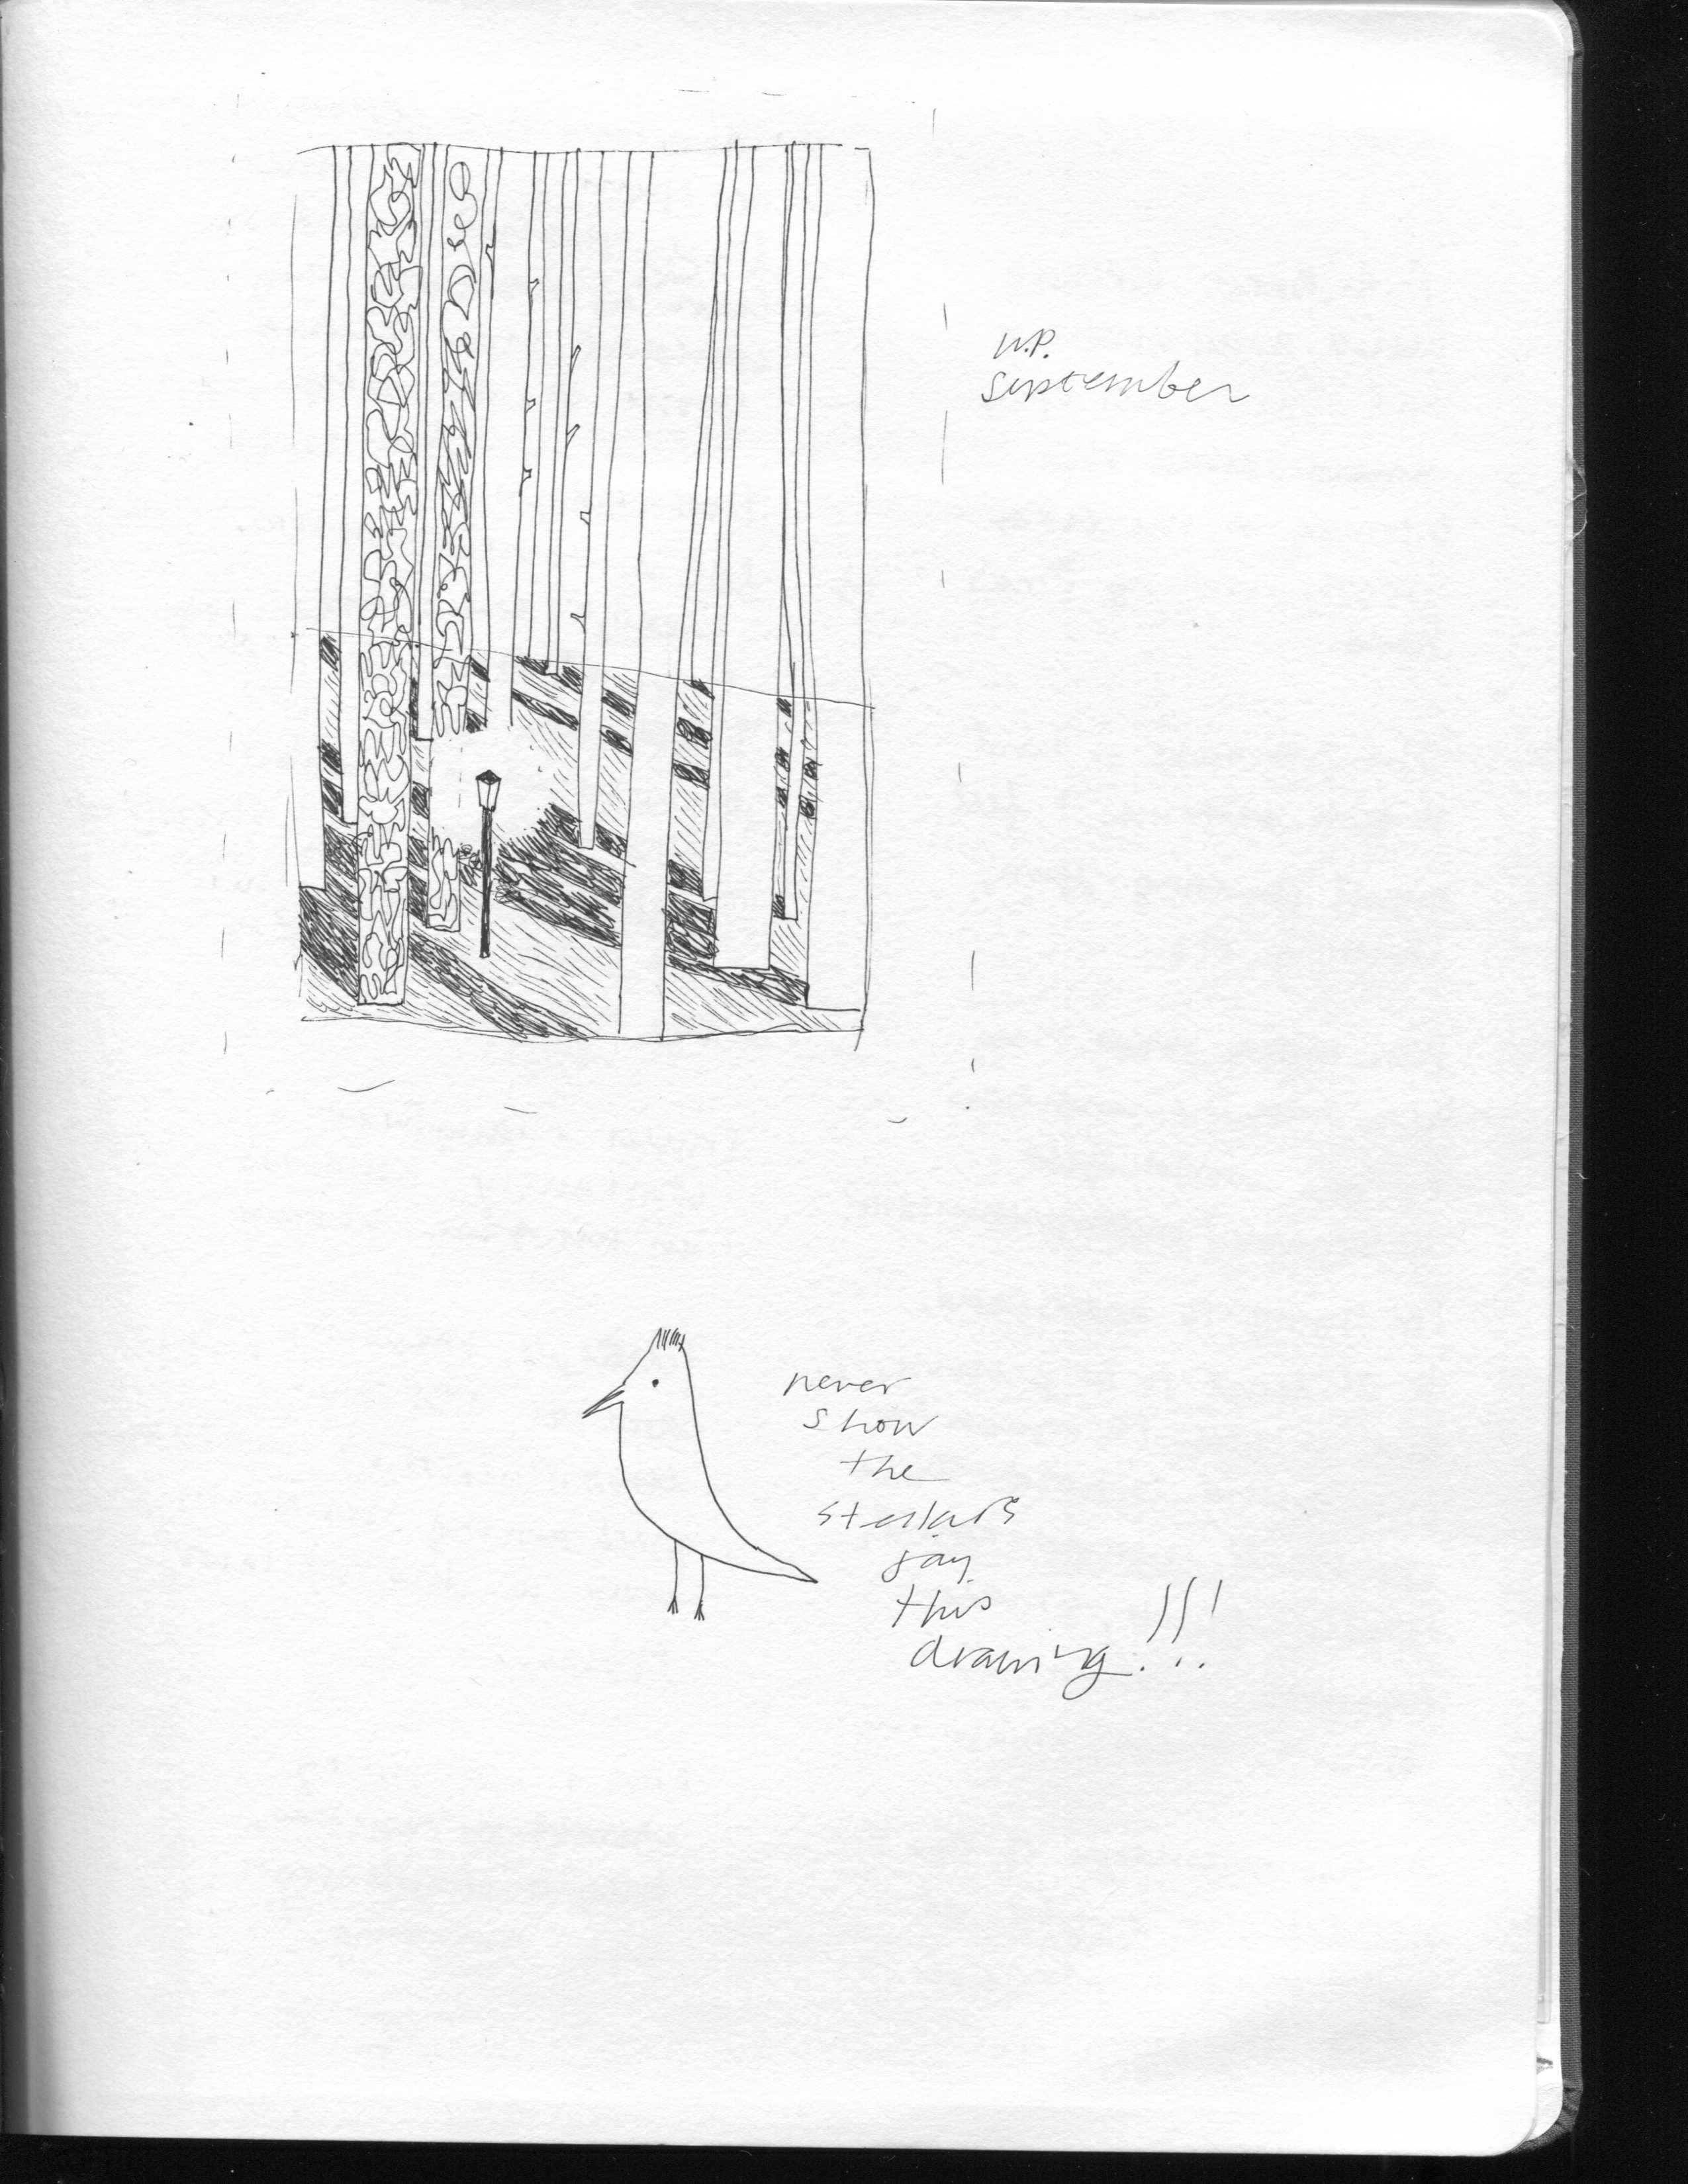 W.P.
September
never
show
the
stellars
jay
this
drawing!!!